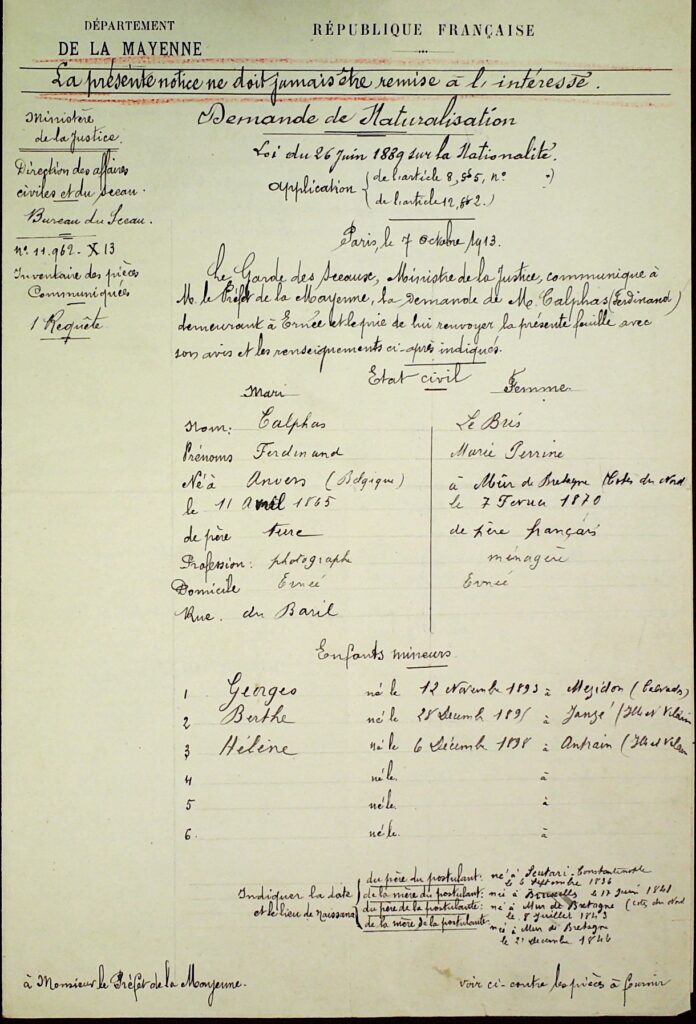 DÉPARTEMENT
DE LA MAYENNE
RÉPUBLIQUE FRANÇAISE
La présente notice ne doit jamais être remise à l'intéressé.
Ministère
de la Justice.
Direction des affaires
civiles et du Sceau.
Bureau du Sceau.
N° 11.962 - X 13
Inventaire des pièces
Communiquées
1 Requête
Demande de Naturalisation
Loi du 26 Juin 1889 sur la Nationalité.
Application
de l'article 8, § 5, n° )
de l'article 12, § 2.)
Paris, le 7 Octobre 1913.
Le Garde des Sceaux, Ministre de la Justice, communique à
M. le Préfet de la Mayenne, la Demande de M. Calphas (Ferdinand)
demeurant à Ernée et le prie de lui renvoyer la présente feuille avec
son avis et les renseignements ci-après indiqués.
Etat civil
Mari
Nom: Calphas
Prénoms Ferdinand
Né à Anvers (Belgique)
le 11 Avril 1865
de père turc
Profession: photographe
Domicile Ernée
Rue. du Baril
Femme
Le Bris
Marie Perrine
à Mûr de Bretagne (Cotes du Nord
le 7 Fevrier 1870
de père français
ménagère
Ernée
Enfants mineurs
1 Georges né le 12 Novembre 1893 à Mezidon (Calvados)
2 Berthe né le 28 Decembre 1895 à Janzé (Ille et Vilaine
3 Hélène né le 6 Décembre 1898 à Antrain (Ille et Vilaine
4 né le. à
5 né le. à
6. né le. à
Indiquer la date
et le lieu de Naissance
du père du postulant: né à Scutari-Constantinople
le 6 Septembre 1836
de la mère du postulant: née à Bruxelles le 17 Juin 1841
du père de la postulante: né à Mur de Bretagne (Cotes du Nord
le 8 Juillet 1843
de la mère de la postulante: née à Mur de Bretagne
le 2 Decembre 1846
à Monsieur le Préfet de la Mayenne.
voir ci-contre les pièces à fournir